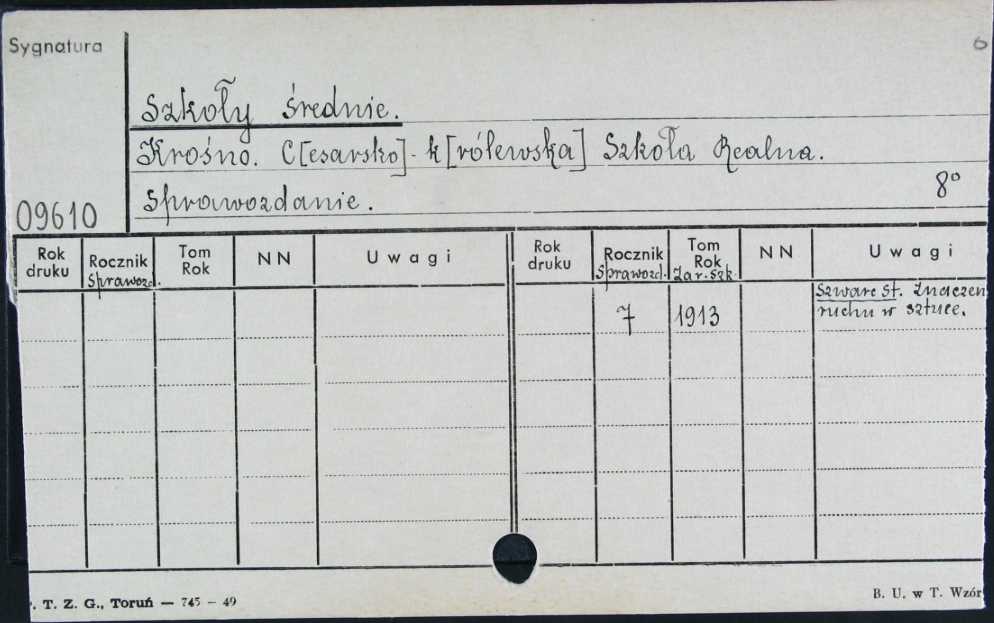 Sygnatura
6
Szkoły średnie.
Krośno. C[esarsko]-k[rólewska] Szkoła Realna.
8°
Sprawozdanie.
09610
Rok druku Rocznik Sprawozd. Tom Rok NN Uwagi Rok druku Rocznik Sprawozd. Tom Rok Zar. szk. NN Uwagi
7 1913 Szwarc St. Znaczen
ruchu w sztuce.
. T. Z. G., Toruń — 745 — 49
B. U. w T. Wzór